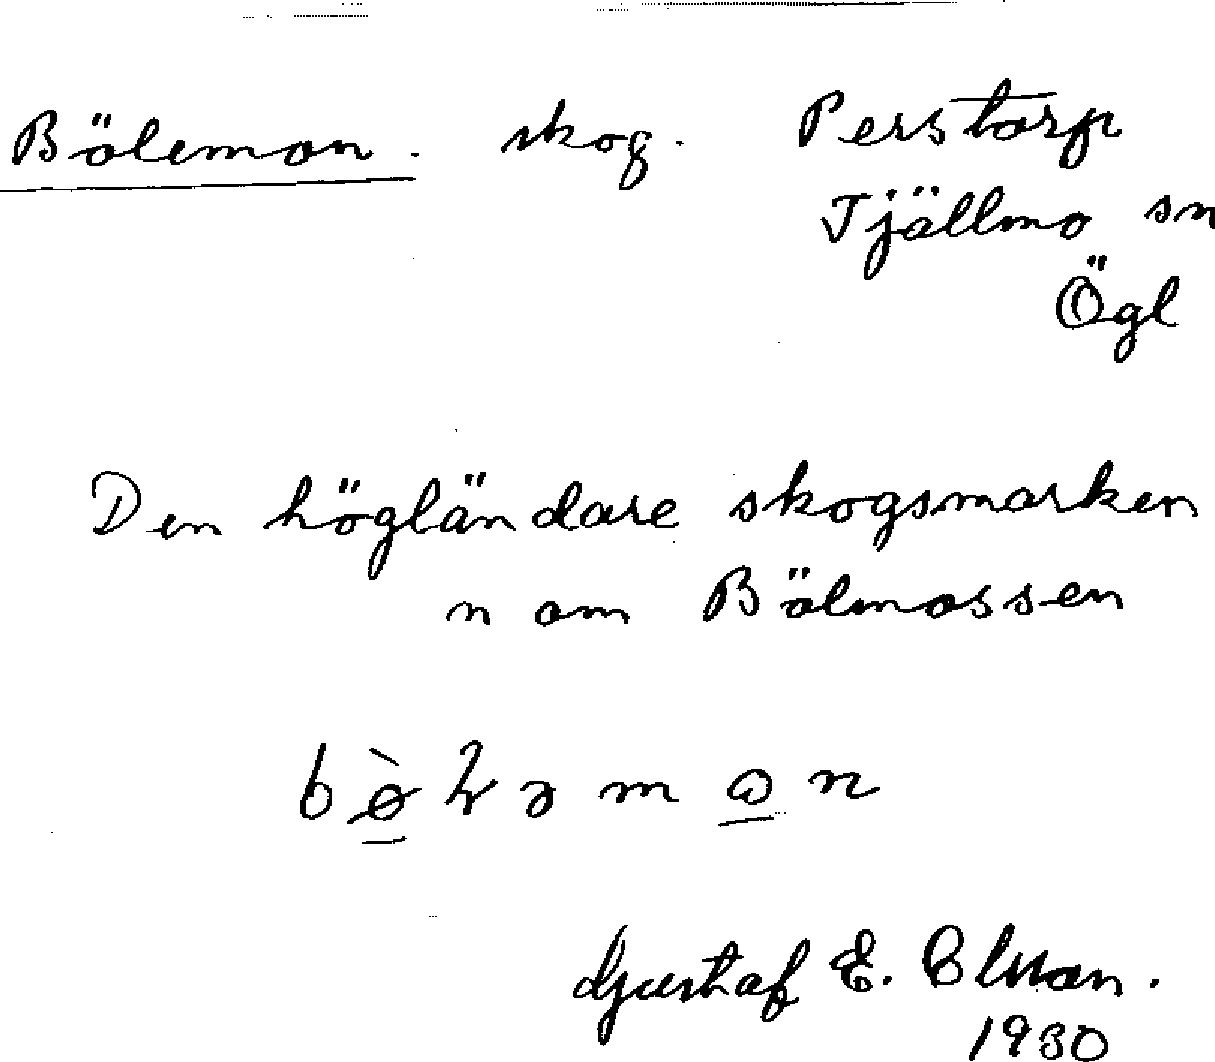 Bölemon. skog. Perstorp
Tjällmo sn
Ögl
Den högländare skogsmarken
n om Bölmossen
Gustaf E.
1930